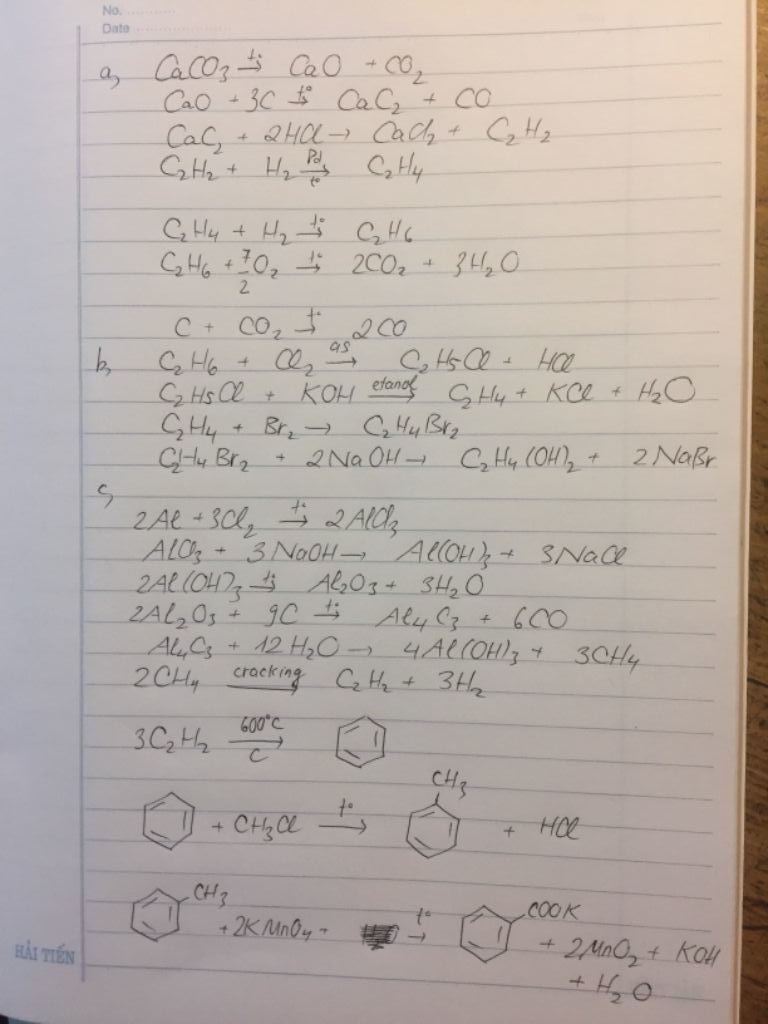 No. ............
Date .....................
a, CaCO₃ →(t°) CaO + CO₂
CaO + 3C →(t°) CaC₂ + CO
CaC₂ + 2HCl → CaCl₂ + C₂H₂
C₂H₂ + H₂ →(Pd, t°) C₂H₄
C₂H₄ + H₂ →(t°) C₂H₆
C₂H₆ + 7/2 O₂ →(t°) 2CO₂ + 3H₂O
C + CO₂ →(t°) 2CO
b, C₂H₆ + Cl₂ →(as) C₂H₅Cl + HCl
C₂H₅Cl + KOH →(etanol) C₂H₄ + KCl + H₂O
C₂H₄ + Br₂ → C₂H₄Br₂
C₂H₄Br₂ + 2NaOH → C₂H₄(OH)₂ + 2NaBr
c,
2Al + 3Cl₂ →(t°) 2AlCl₃
AlCl₃ + 3NaOH → Al(OH)₃ + 3NaCl
2Al(OH)₃ →(t°) Al₂O₃ + 3H₂O
2Al₂O₃ + 9C →(t°) Al₄C₃ + 6CO
Al₄C₃ + 12H₂O → 4Al(OH)₃ + 3CH₄
2CH₄ →(cracking) C₂H₂ + 3H₂
3C₂H₂ →(600°C, C)
CH₃
+ CH₃Cl →(t°) + HCl
CH₃ COOK
+ 2KMnO₄ + →(t°) + 2MnO₂ + KOH
+ H₂O
HẢI TIẾN